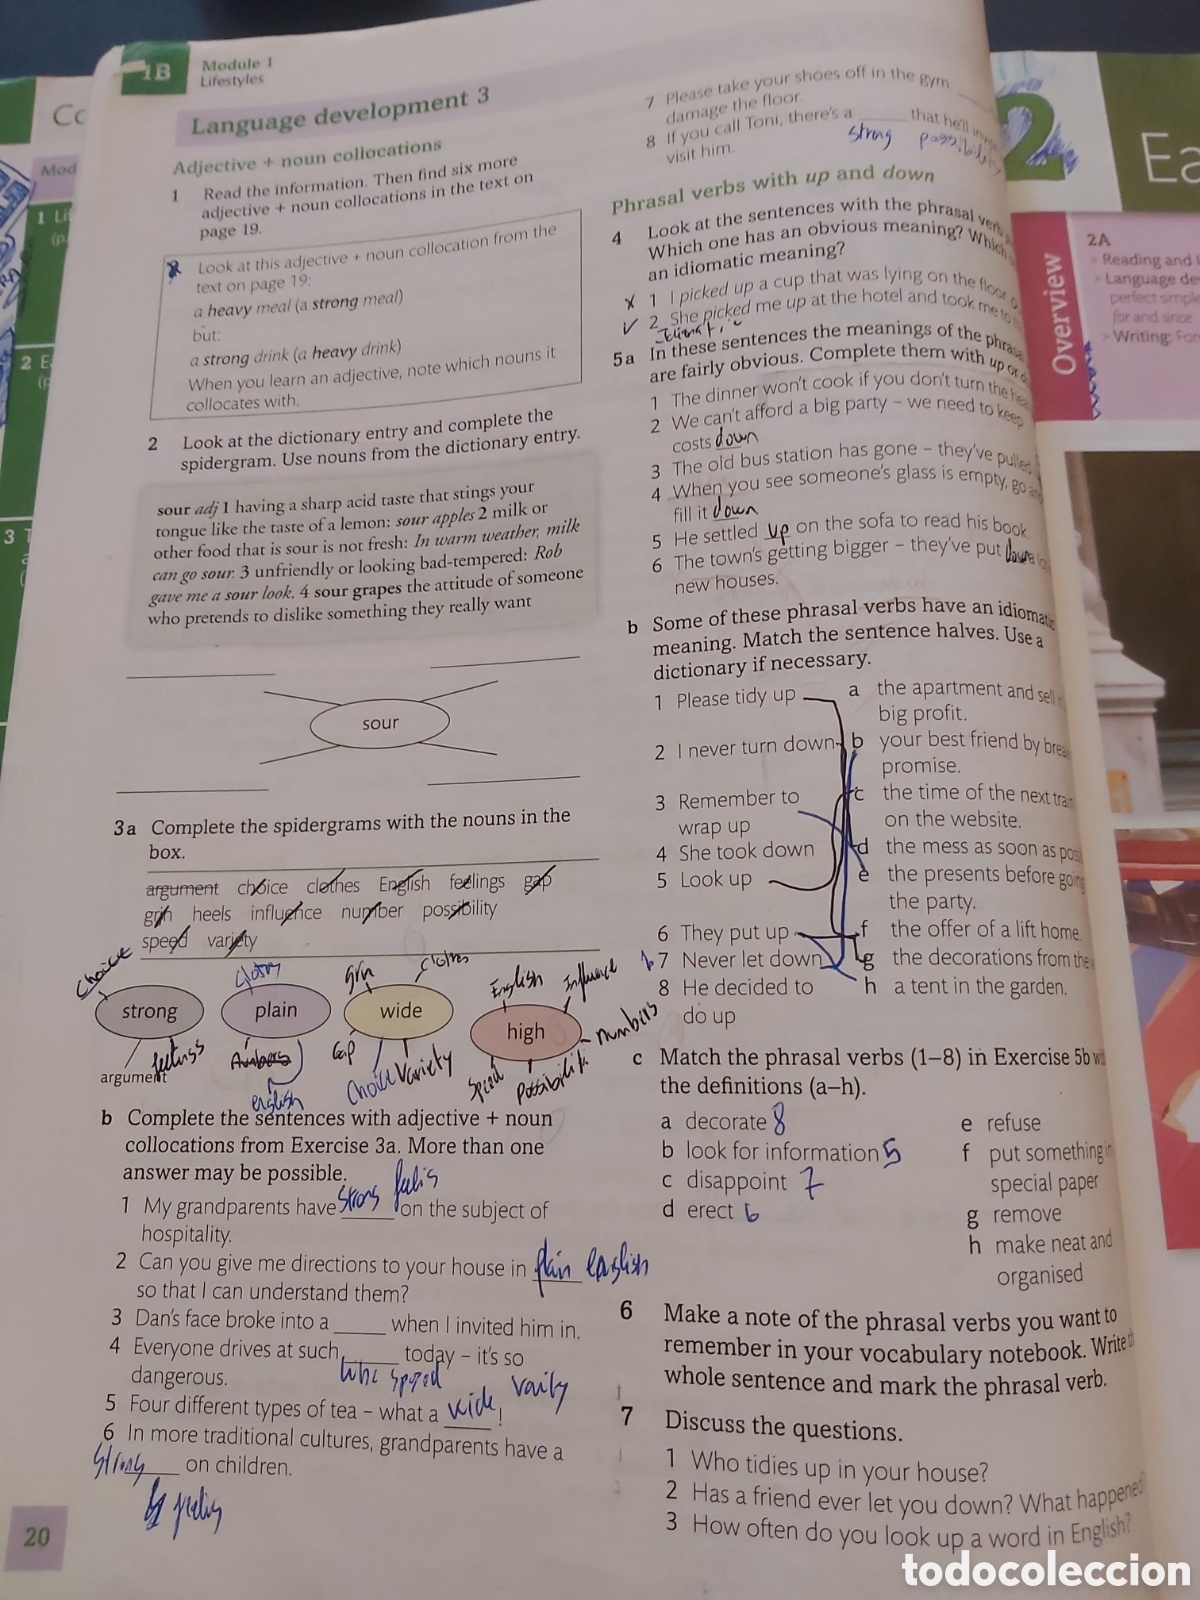 1B
Module 1
Lifestyles
Language development 3
Adjective + noun collocations
1 Read the information. Then find six more
adjective + noun collocations in the text on
page 19.
Look at this adjective + noun collocation from the
text on page 19:
a heavy meal (a strong meal)
but:
a strong drink (a heavy drink)
When you learn an adjective, note which nouns it
collocates with.
2 Look at the dictionary entry and complete the
spidergram. Use nouns from the dictionary entry.
sour adj 1 having a sharp acid taste that stings your
tongue like the taste of a lemon: sour apples 2 milk or
other food that is sour is not fresh: In warm weather, milk
can go sour. 3 unfriendly or looking bad-tempered: Rob
gave me a sour look. 4 sour grapes the attitude of someone
who pretends to dislike something they really want
sour
3a Complete the spidergrams with the nouns in the
box.
argument choice clothes English feelings gap
grin heels influence number possibility
speed variety
choice
clothes
English
influence
strong
plain
wide
high
numbers
argument
Gap
choice
variety
speed
english
b Complete the sentences with adjective + noun
collocations from Exercise 3a. More than one
answer may be possible.
1 My grandparents have strong on the subject of
hospitality.
2 Can you give me directions to your house in plain english
so that I can understand them?
3 Dan's face broke into a ____ when I invited him in.
4 Everyone drives at such ____ today – it's so
dangerous.
speed
5 Four different types of tea – what a wide !
6 In more traditional cultures, grandparents have a
strong on children.
20
7 Please take your shoes off in the gym.
damage the floor.
8 If you call Toni, there's a ____ that he'll
strong
visit him.
Phrasal verbs with up and down
4 Look at the sentences with the phrasal verb
Which one has an obvious meaning? Which
an idiomatic meaning?
x 1 I picked up a cup that was lying on the floor
✓ 2 She picked me up at the hotel and took me to
5a In these sentences the meanings of the
are fairly obvious. Complete them with up or
1 The dinner won't cook if you don't turn the
2 We can't afford a big party – we need to keep
costs down
3 The old bus station has gone – they've pulled
4 When you see someone's glass is empty, go
fill it down
5 He settled up on the sofa to read his book.
6 The town's getting bigger – they've put down
new houses.
b Some of these phrasal verbs have an idiomatic
meaning. Match the sentence halves. Use a
dictionary if necessary.
1 Please tidy up
a the apartment and sell
big profit.
2 I never turn down
b your best friend by
promise.
3 Remember to
wrap up
c the time of the next
on the website.
4 She took down
d the mess as soon as
5 Look up
e the presents before
the party.
6 They put up
f the offer of a lift home.
7 Never let down
g the decorations from
8 He decided to
do up
h a tent in the garden.
c Match the phrasal verbs (1–8) in Exercise 5b
the definitions (a–h).
a decorate 8
b look for information 5
c disappoint 7
d erect 6
e refuse
f put something
special paper
g remove
h make neat and
organised
6 Make a note of the phrasal verbs you want to
remember in your vocabulary notebook. Write
whole sentence and mark the phrasal verb.
7 Discuss the questions.
1 Who tidies up in your house?
2 Has a friend ever let you down? What happened
3 How often do you look up a word in English?
2
Ea
Overview
2A
> Reading and
> Language
perfect simple
for and since
> Writing:
todocoleccion